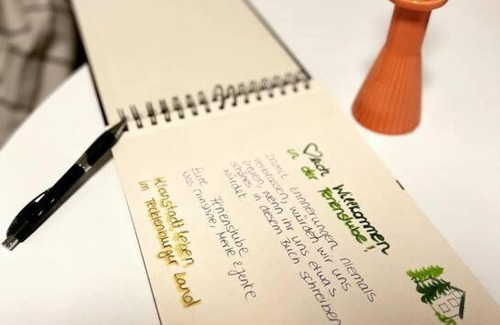 ♡lich Willkommen
in der Ferienstube!
Damit Erinnerungen niemals
verblassen, würden wir uns
freuen, wenn ihr uns etwas
schönes in diesem Buch schreiben
würdet
Eure Ferienstube
Merle & Jente
Kleinstadtleben
im Tecklenburger Land